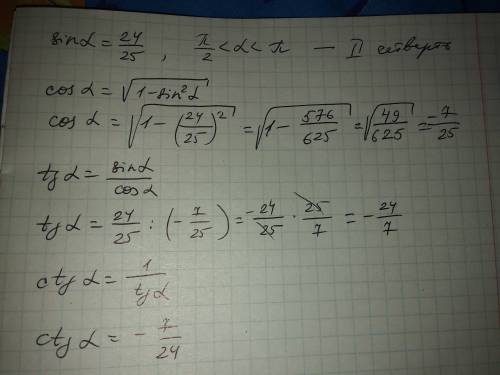 sinα = 24/25, π/2 < α < π — II четверть
cos α = √(1 - sin²α)
cos α = √(1 - (24/25)²) = √(1 - 576/625) = √(49/625) = -7/25
tg α = sinα/cosα
tg α = 24/25 : (-7/25) = -24/25 · 25/7 = -24/7
ctg α = 1/tg α
ctg α = - 7/24